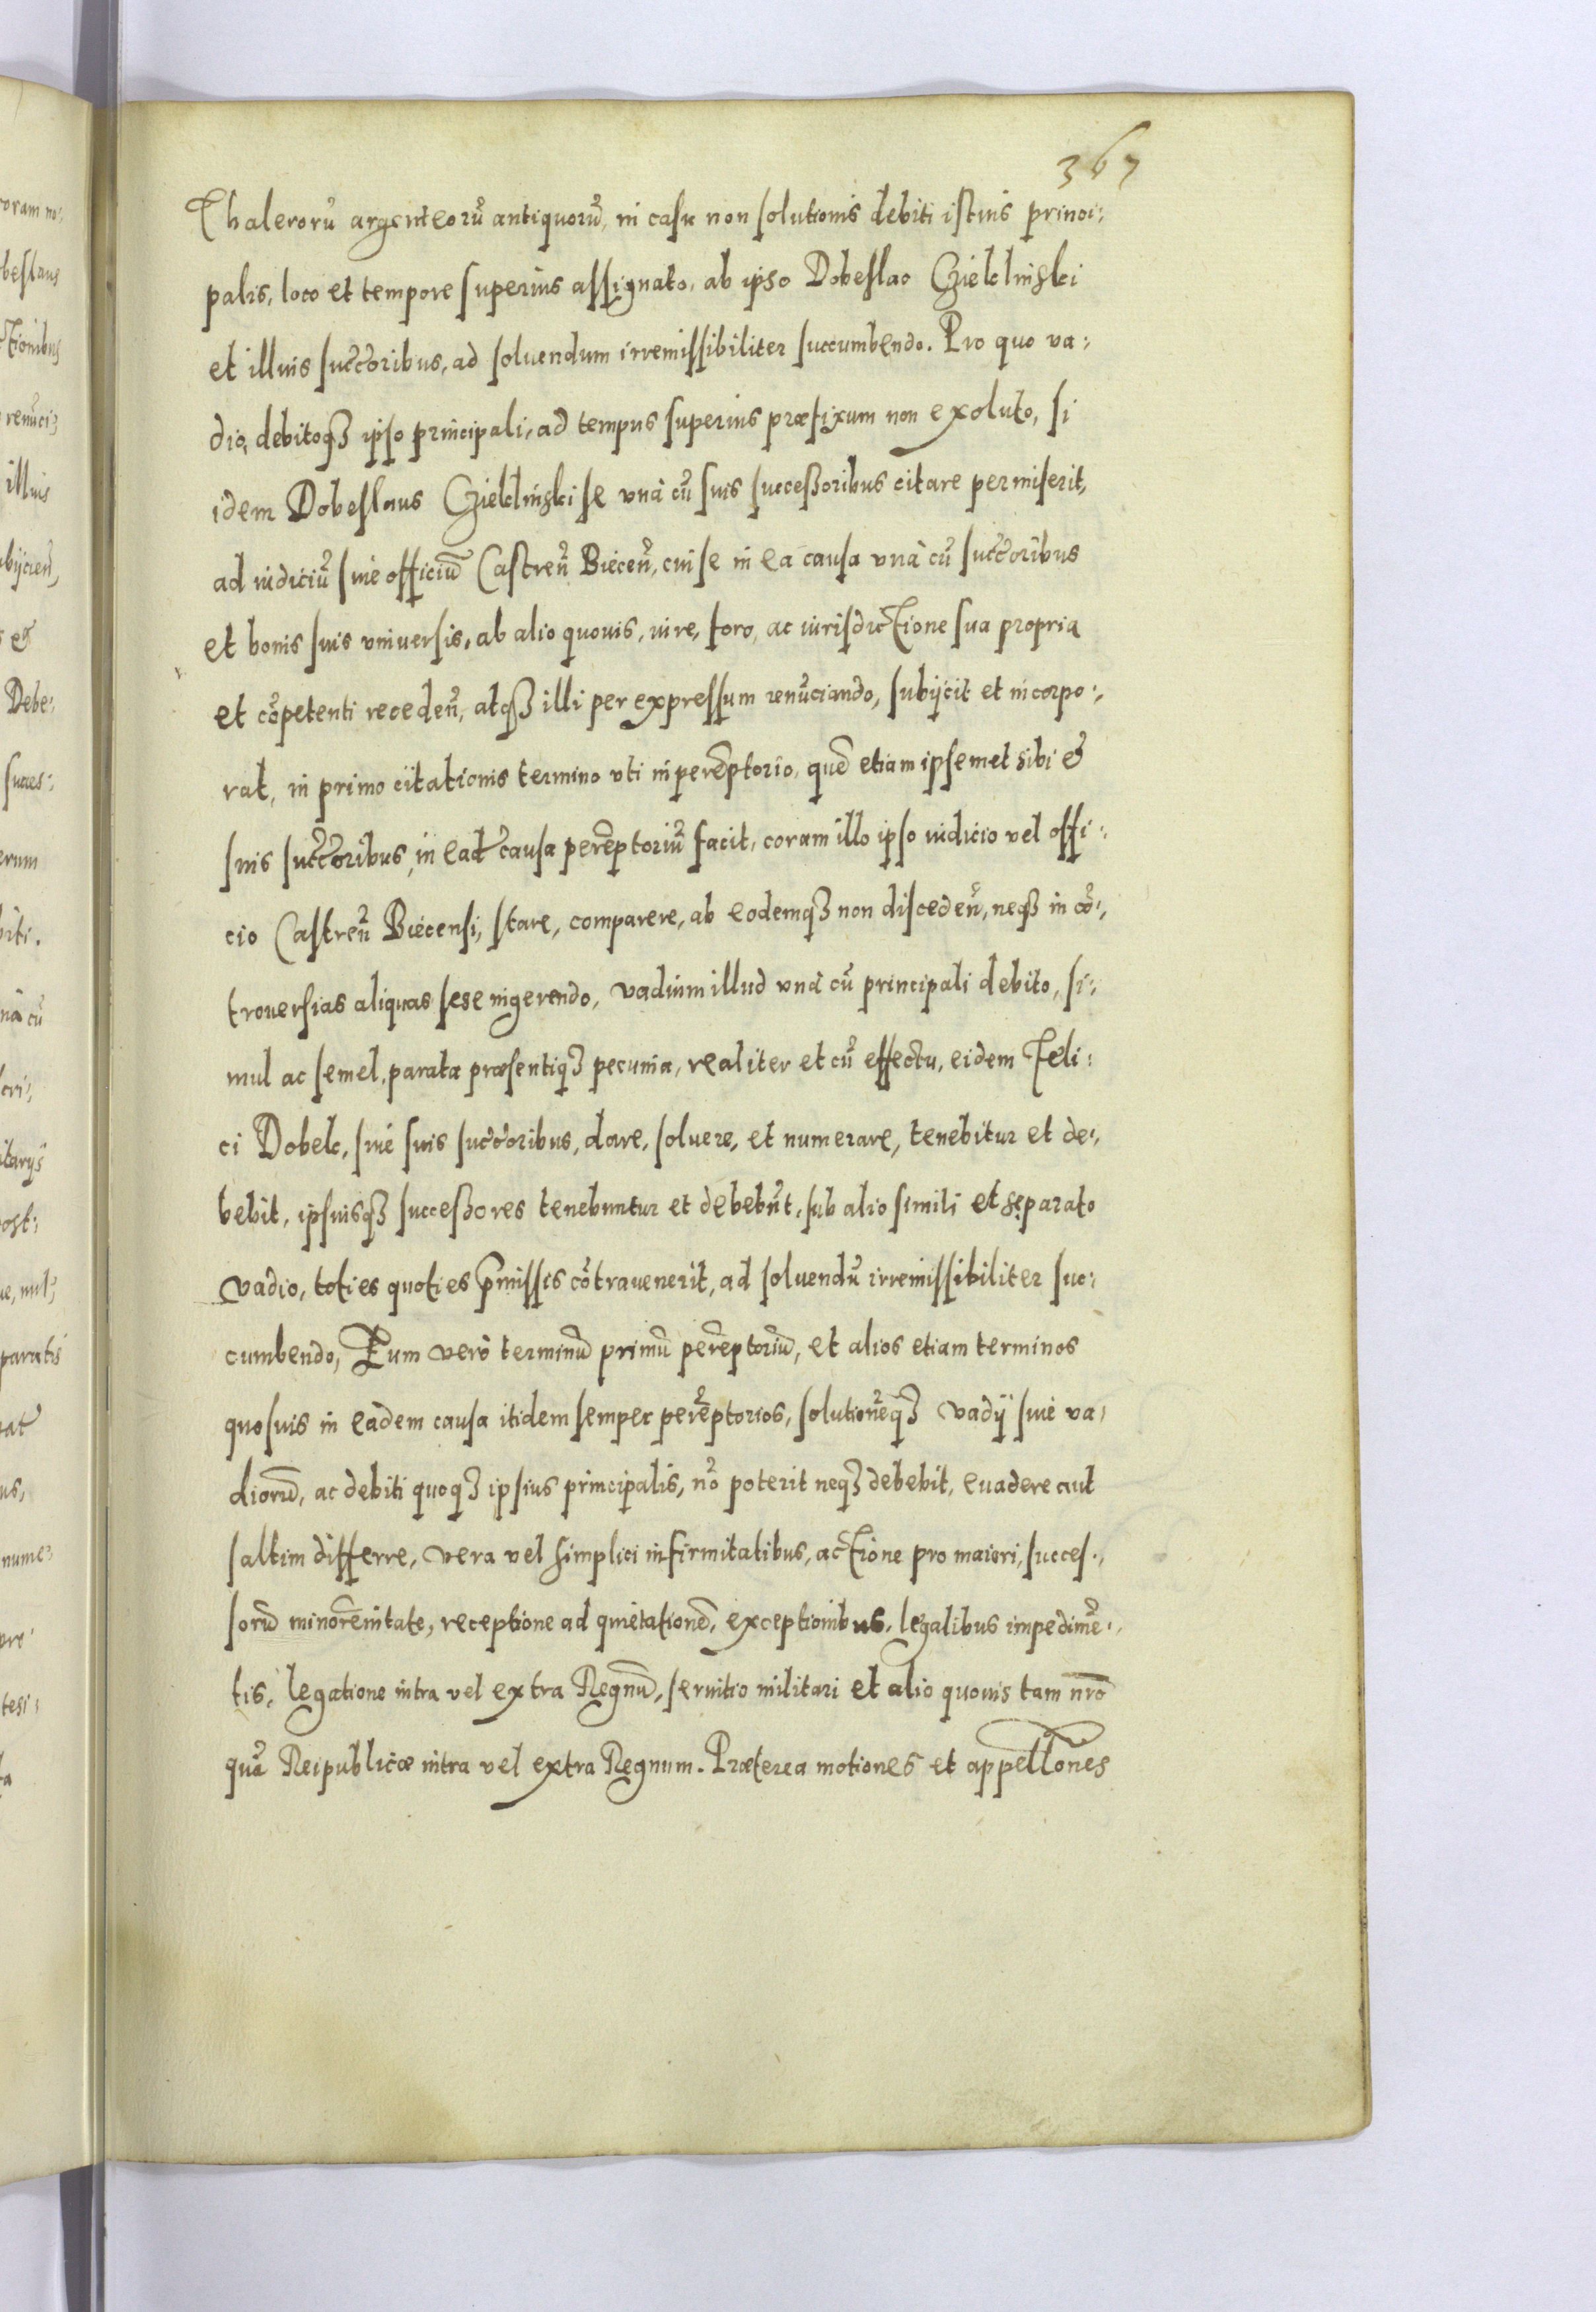 367
Thalerorũ argenteorũ antiquorũ, in casu non solutionis debiti istius princi:
palis, loco et tempore superius assignato, ab ipso Dobeslao Czieklinski
et illius succ̃oribus, ad soluendum irremissibiliter succumbendo. Pro quo va:
dio, debitoqꝫ ipso principali, ad tempus superius præfixum non exoluto, si
idem Dobeslaus Czieklinski se vnà cũ suis succeßoribus citare permiserit,
ad iudiciũ siue officiũ Castreñ Bieceñ, cui se in ea causa vnà cũ succ̃oribus
et bonis suis vniuersis, ab alio quouis, iure, foro, ac iurisdictione sua propria
et cõpetenti recedeñ, atqꝫ illi per expressum renũciando, subijcit et incorpo:
rat, in primo citationis termino vti in perẽptorio, quẽ etiam ipsemet sibi &
suis succ̃oribus, in ead̃ causa perẽptoriũ facit, coram illo ipso iudicio vel offi:
cio Castreñ Biecensi, stare, comparere, ab eodemqꝫ non discedeñ, neqꝫ in cõ:
trouersias aliquas sese ingerendo, vadium illud vnà cũ principali debito, si:
mul ac semel, parata præsentiqꝫ pecunia, realiter et cũ effectu, eidem Feli:
ci Dobek, siue suis succ̃oribus, dare, soluere, et numerare, tenebitur et de:
bebit, ipsiusqꝫ succeßores tenebuntur et debebũt, sub alio simili et separato
vadio, toties quoties p̃missis cõtrauenerit, ad soluendũ irremissibiliter suc:
cumbendo, Eum verò terminũ primũ perẽptoriũ, et alios etiam terminos
quosuis in eadem causa itidem semper perẽptorios, solutionẽqꝫ vadij siue va:
diorũ, ac debiti quoqꝫ ipsius principalis, nõ poterit neqꝫ debebit, euadere aut
saltim differre, vera vel simplici infirmitatibus, actione pro maiori, succes:
sorũ minorẽnitate, receptione ad quietationẽ, exceptionibus, legalibus impedimẽ:
tis, legatione intra vel extra Regnũ, seruitio militari et alio quouis tam nr̃o
quã Reipublicæ intra vel extra Regnum. Præterea motiones et appell̃ones